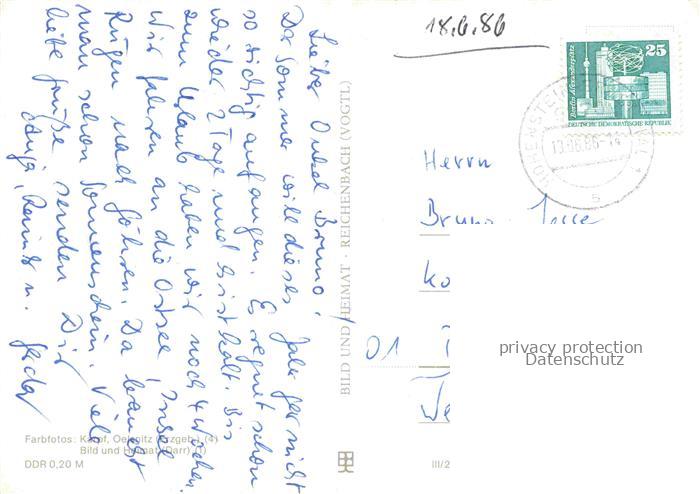 18.6.86
Lieber Onkel Bruno!
Der Sommer will dieses Jahr gar nicht
so richtig anfangen. Es regnet schon
wieder 2 Tage und es ist kalt. Bis
zum Urlaub haben wir noch 4 Wochen.
Wir fahren an die Ostsee, Insel
Rügen nach Göhren. Da braucht
man schon Sonnenschein. Viele
liebe Grüße senden Dir
u.
BILD UND HEIMAT · REICHENBACH (VOGTL)
Farbfotos: Kampf, Oelsnitz (Erzgeb.) (4)
Bild und Heimat (Darr) (1)
DDR 0,20 M
III/2
25
Berlin, Alexanderplatz
DEUTSCHE DEMOKRATISCHE REPUBLIK
HOHENSTEIN
19.06.86-14
s
Herrn
Bruno
Ko
01
We
privacy protection
Datenschutz